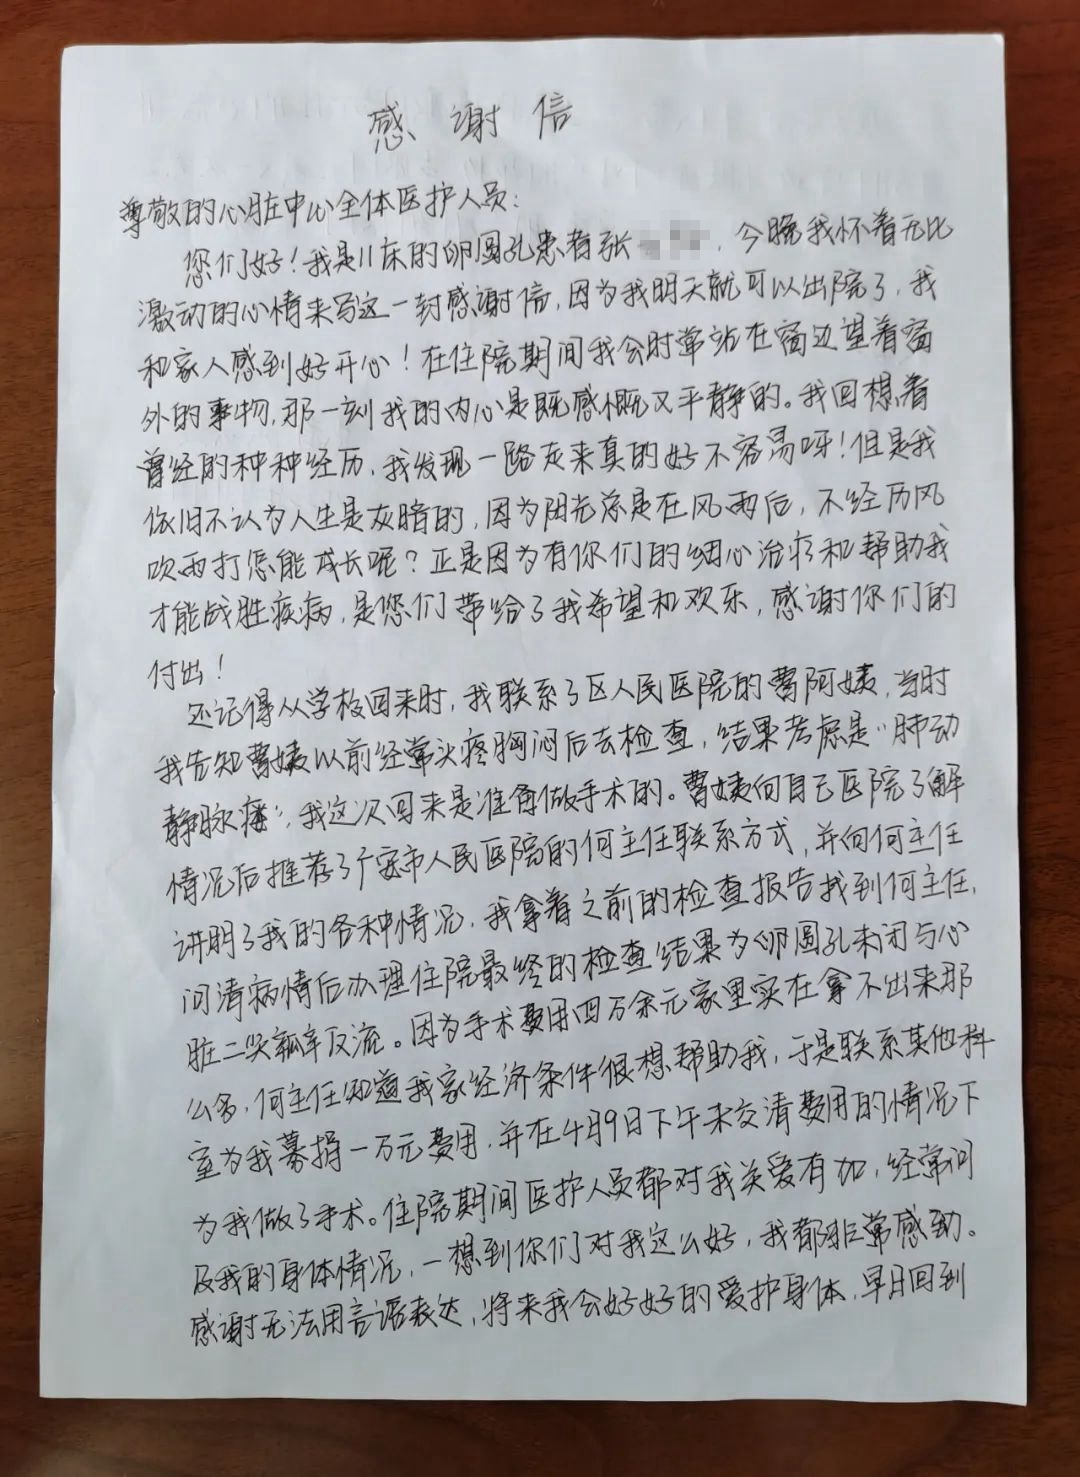 感谢信
尊敬的心脏中心全体医护人员：
您们好！我是11床的卵圆孔患者张，今晚我怀着无比
激动的心情来写这一封感谢信，因为我明天就可以出院了，我
和家人感到好开心！在住院期间我会时常站在窗边望着窗
外的事物，那一刻我的内心是既感慨又平静的。我回想着
曾经的种种经历，我发现一路走来真的好不容易呀！但是我
依旧不认为人生是灰暗的，因为阳光总是在风雨后，不经历风
吹雨打怎能成长呢？正是因为有你们的细心治疗和帮助我
才能战胜疾病，是您们带给了我希望和欢乐，感谢你们的
付出！
还记得从学校回来时，我联系了区人民医院的曹阿姨，当时
我告知曹姨以前经常头疼胸闷后去检查，结果考虑是“肺动
静脉瘘”，我这次回来是准备做手术的。曹姨向自己医院了解
情况后推荐了广安市人民医院的何主任联系方式，并向何主任
讲明了我的各种情况，我拿着之前的检查报告找到何主任，
问清病情后办理住院最终的检查结果为卵圆孔未闭与心
脏二尖瓣反流。因为手术费用四万余元家里实在拿不出来那
么多，何主任知道我家经济条件很想帮助我，于是联系其他科
室为我募捐一万元费用，并在4月9日下午未交清费用的情况下
为我做了手术。住院期间医护人员都对我关爱有加，经常问
及我的身体情况，一想到你们对我这么好，我都非常感动。
感谢无法用言语表达，将来我会好好的爱护身体，早日回到